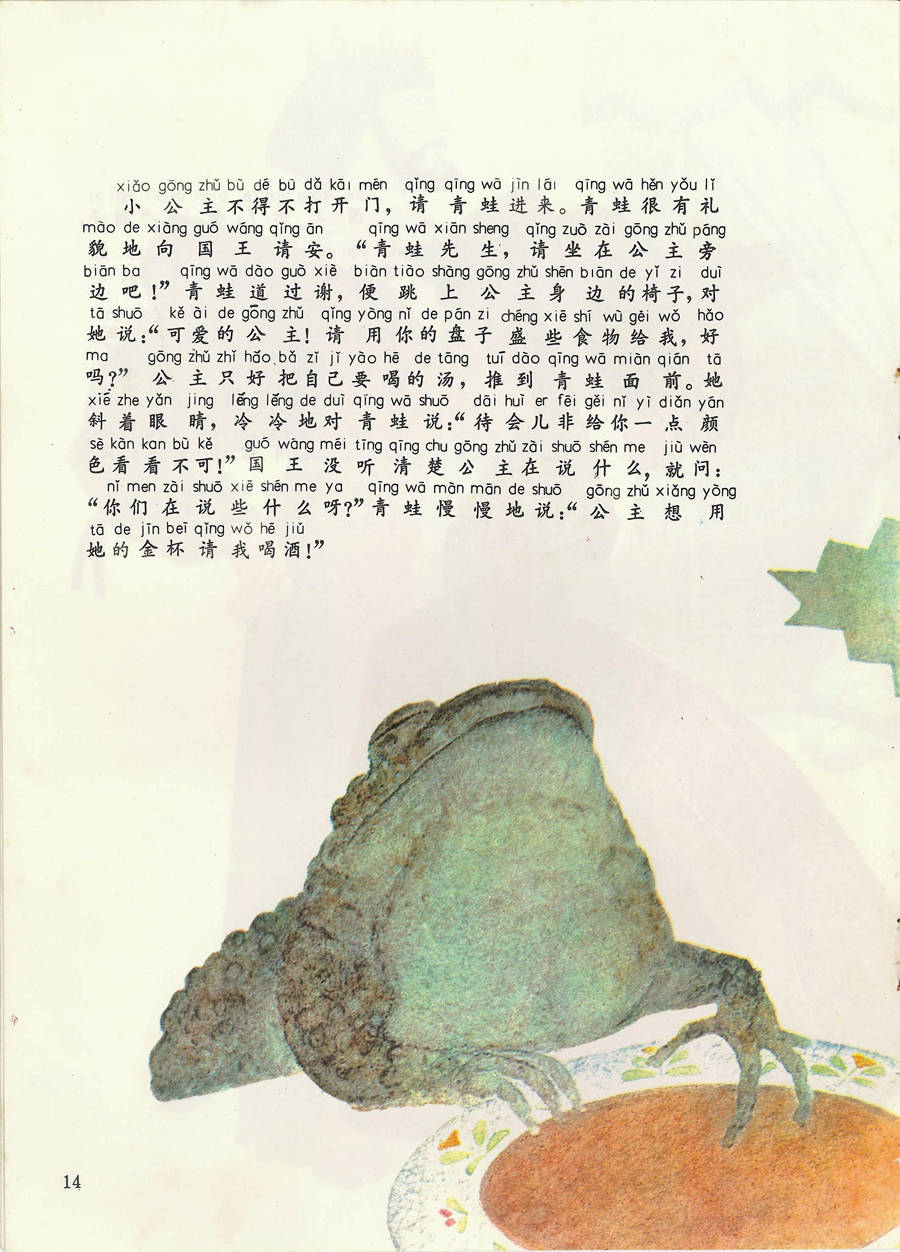 xiǎo gōng zhǔ bù dé bù dǎ kāi mén qǐng qīng wā jìn lái qīng wā hěn yǒu lǐ
小公主不得不打开门，请青蛙进来。青蛙很有礼
mào de xiàng guó wáng qǐng ān qīng wā xiān sheng qǐng zuò zài gōng zhǔ páng
貌地向国王请安。“青蛙先生，请坐在公主旁
biān ba qīng wā dào guò xiè biàn tiào shàng gōng zhǔ shēn biān de yǐ zi duì
边吧！”青蛙道过谢，便跳上公主身边的椅子，对
tā shuō kě ài de gōng zhǔ qǐng yòng nǐ de pán zi chéng xiē shí wù gěi wǒ hǎo
她说：“可爱的公主！请用你的盘子盛些食物给我，好
ma gōng zhǔ zhǐ hǎo bǎ zǐ jǐ yào hē de tāng tuī dào qīng wā miàn qián tā
吗？”公主只好把自己要喝的汤，推到青蛙面前。她
xié zhe yǎn jing lěng lěng de duì qīng wā shuō dāi huì er fēi gěi nǐ yì diǎn yán
斜着眼睛，冷冷地对青蛙说：“待会儿非给你一点颜
sè kàn kan bù kě guó wàng méi tīng qīng chu gōng zhǔ zài shuō shén me jiù wèn
色看看不可！”国王没听清楚公主在说什么，就问：
nǐ men zài shuō xiē shén me ya qīng wā màn mān de shuō gōng zhǔ xiǎng yòng
“你们在说些什么呀？”青蛙慢慢地说：“公主想用
tā de jīn beī qǐng wǒ hē jiǔ
她的金杯请我喝酒！”
14